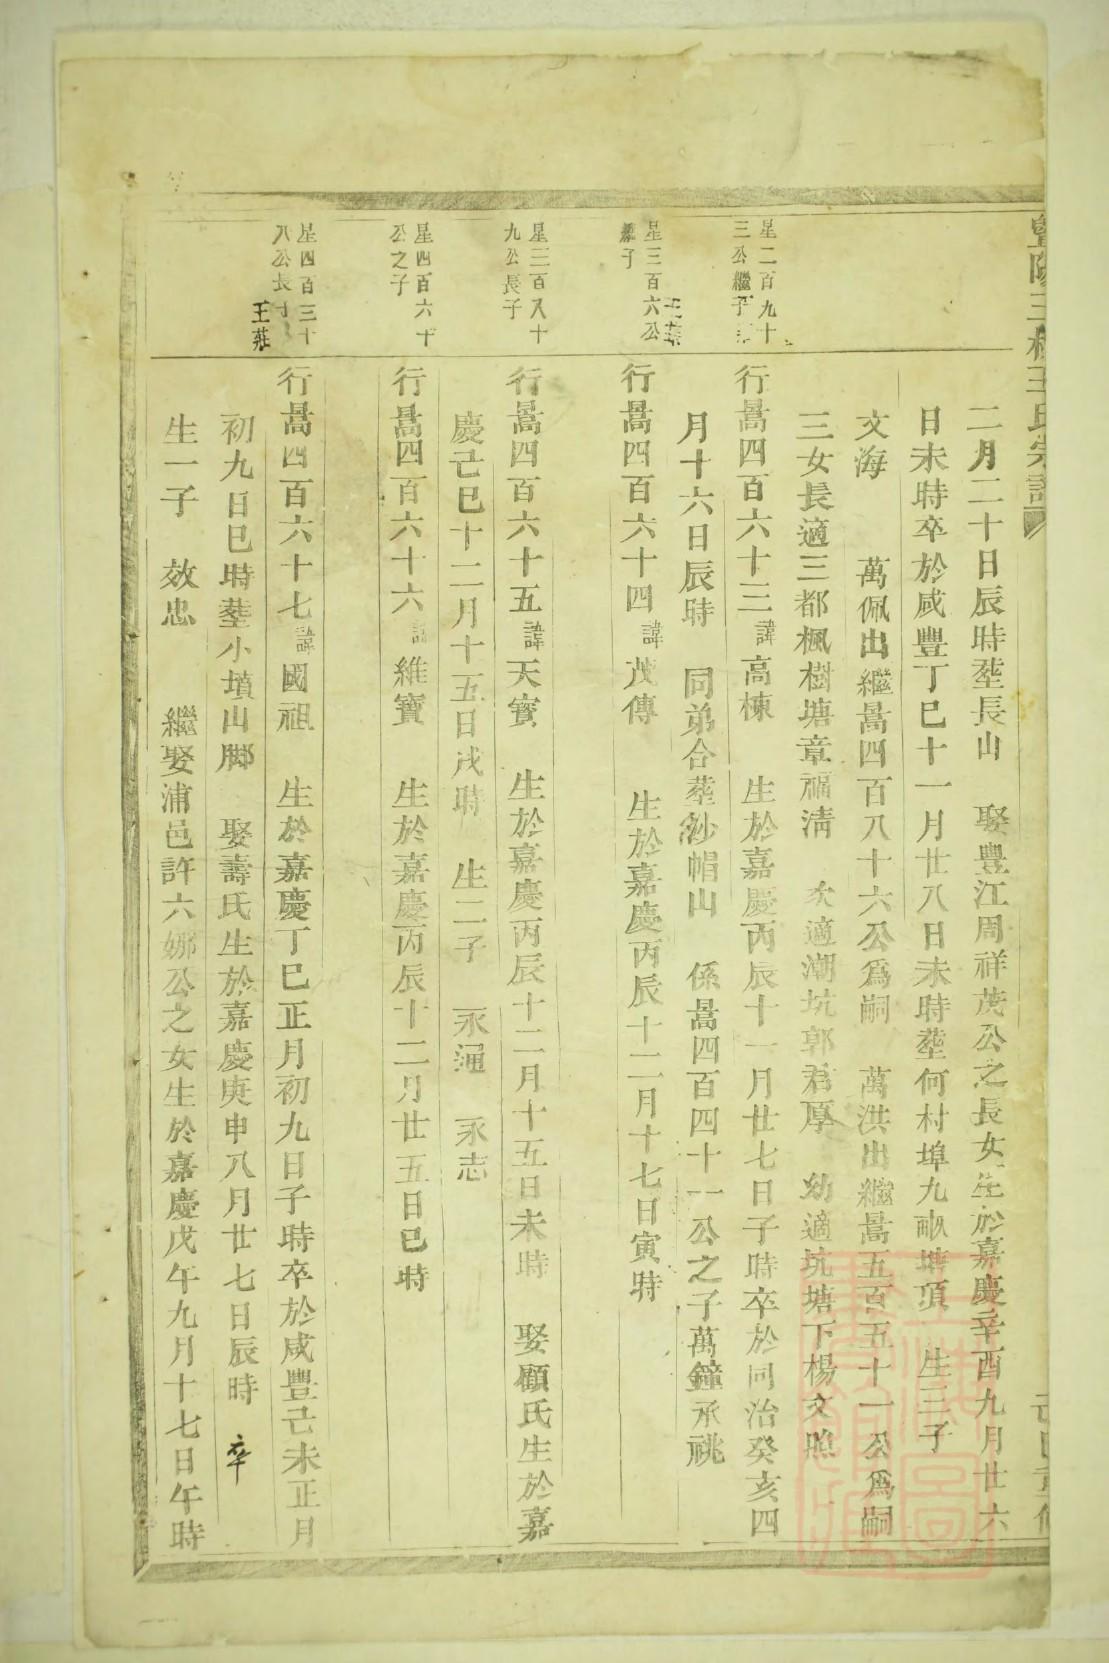 二月二十日辰時塟長山 娶豐江周祥茂公之長女生於嘉慶辛酉九月廿六
日未時卒於咸豐丁巳十一月廿八日未時塟何村埠九畝塘頂 生三子
文海 萬佩出繼暠四百八十六公爲嗣 萬洪出繼暠五百五十一公爲嗣
三女長適三都楓樹塘章福淸 次適潮坑郭君厚 幼適坑塘下楊文照
星二百九十
三公繼子
行暠四百六十三諱高棟 生於嘉慶丙辰十一月廿七日子時卒於同治癸亥四
月十六日辰時 同弟合塟紗帽山 係暠四百四十一公之子萬鐘承祧
星三百六公
繼子
行暠四百六十四諱茂傳 生於嘉慶丙辰十二月十七日寅時
星三百八十
九公長子
行暠四百六十五諱天寳 生於嘉慶丙辰十二月十五日未時 娶顧氏生於嘉
慶己巳十二月十五日戌時 生二子 永通 永志
星四百六十
公之子
行暠四百六十六諱維寶 生於嘉慶丙辰十二月廿五日巳時
星四百三十
八公長子
王莊
行暠四百六十七諱國祖 生於嘉慶丁巳正月初九日子時卒於咸豐己未正月
初九日巳時塟小墳山脚 娶壽氏生於嘉慶庚申八月廿七日辰時 卒
生一子 效忠 繼娶浦邑許六娜公之女生於嘉慶戊午九月十七日午時